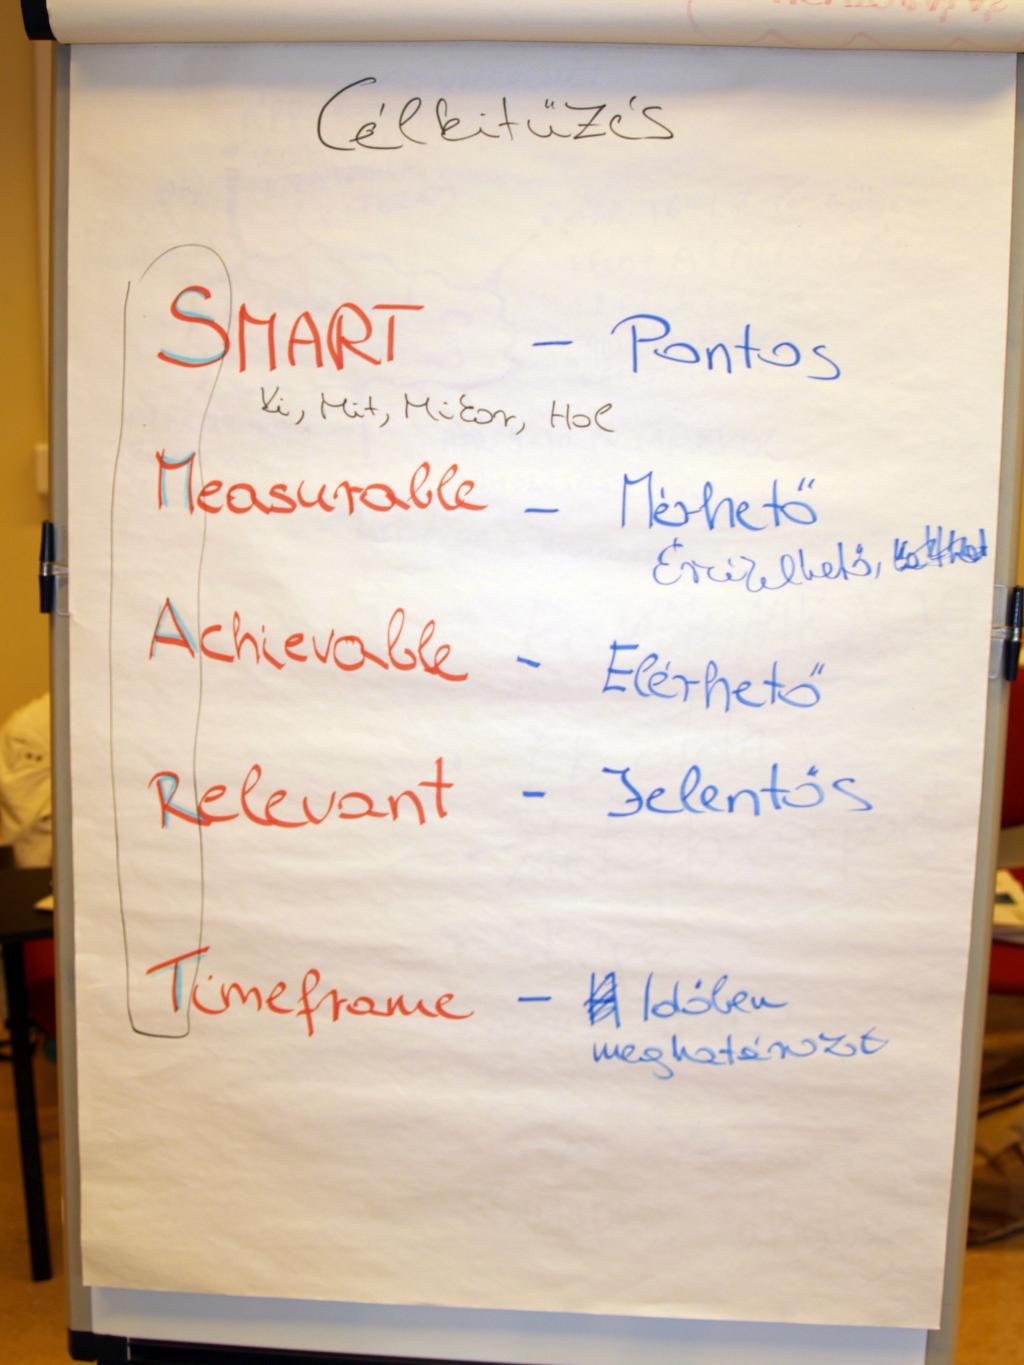 Célkitűzés
SMART - Pontos
Ki, Mit, Mikor, Hol
Measurable - Mérhető
Érzékelhető,
Achievable - Elérhető
Relevant - Jelentős
Timeframe - Időben
meghatározt